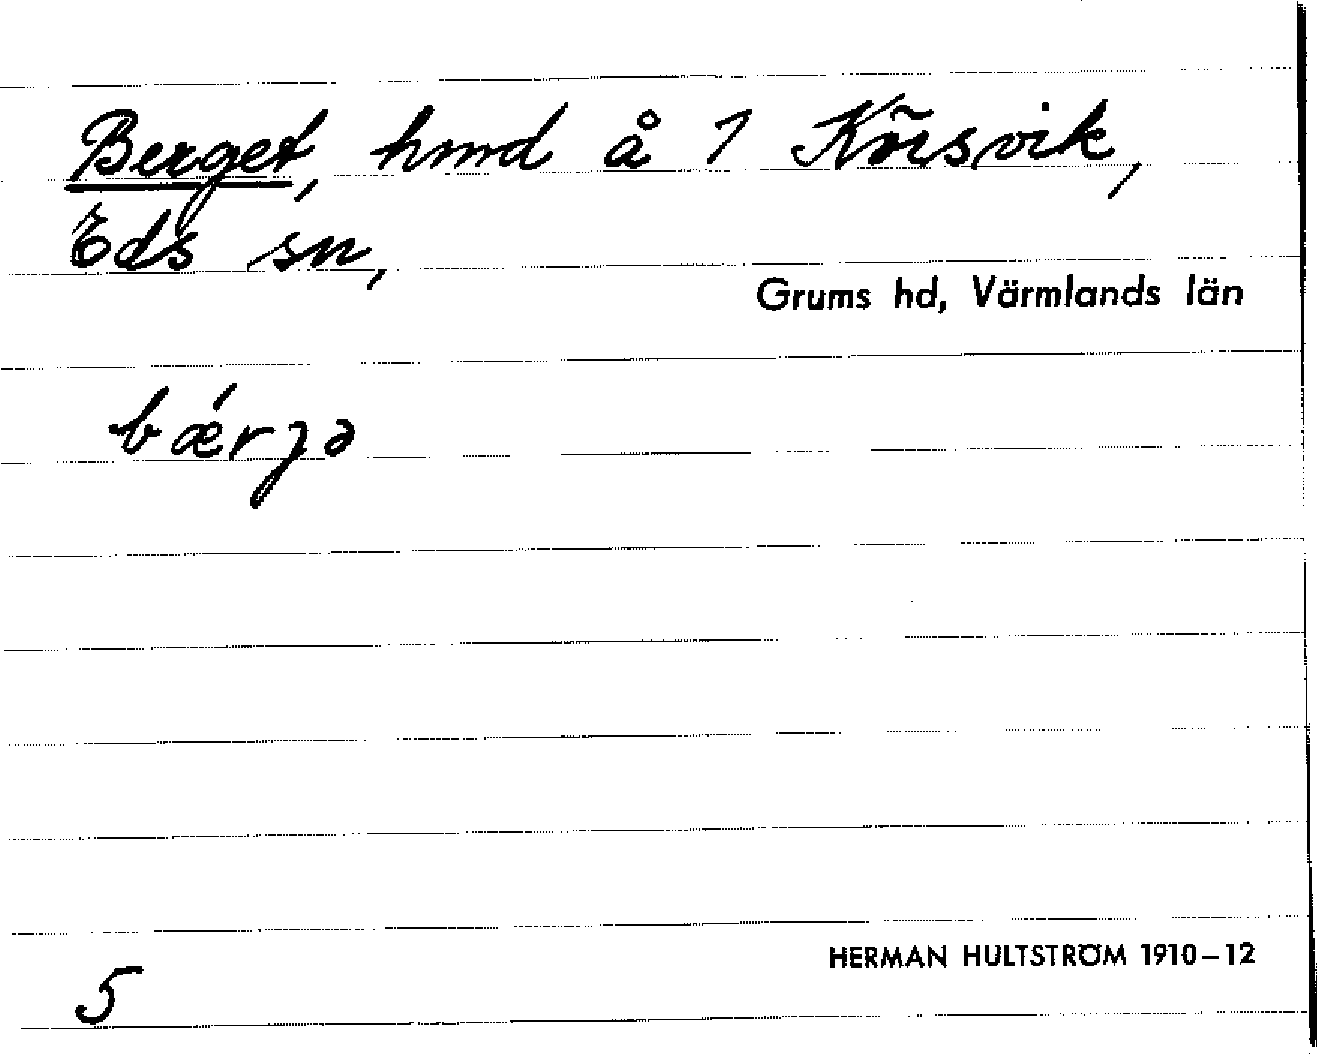 Berget, hmd å 1 Körsvik,
Eds sn,
Grums hd, Värmlands län
bǽrɟə
HERMAN HULTSTRÖM 1910–12
5